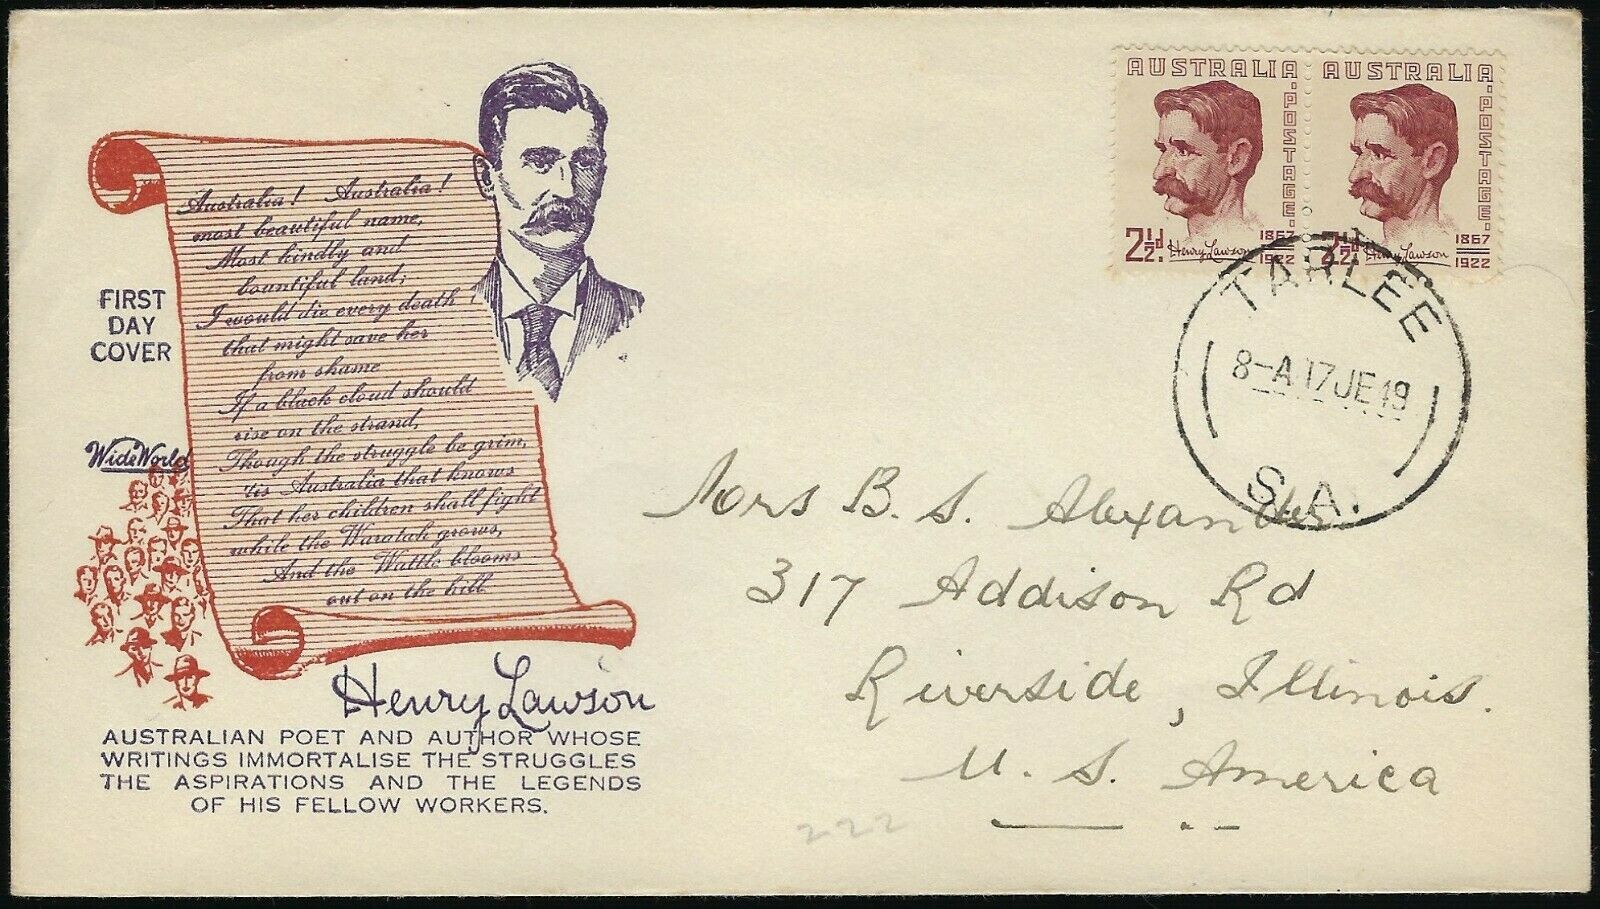 Australia! Australia!
most beautiful name,
Most kindly and
bountiful land;
I would die every death
that might save her
from shame
If a black cloud should
rise on the strand,
Though the struggle be grim,
'tis Australia that knows
That her children shall fight
while the Waratah grows,
And the Wattle blooms
out on the hill
FIRST
DAY
COVER
Wide World
Henry Lawson
AUSTRALIAN POET AND AUTHOR WHOSE
WRITINGS IMMORTALISE THE STRUGGLES
THE ASPIRATIONS AND THE LEGENDS
OF HIS FELLOW WORKERS.
AUSTRALIA
POSTAGE
2½d.
Henry Lawson
1867
1922
AUSTRALIA
POSTAGE
2½d.
Henry Lawson
1867
1922
TARLEE
8-A 17 JE 49
S.A.
Mrs B. S. Alexander
317 Addison Rd
Riverside, Illinois.
U. S. America
222